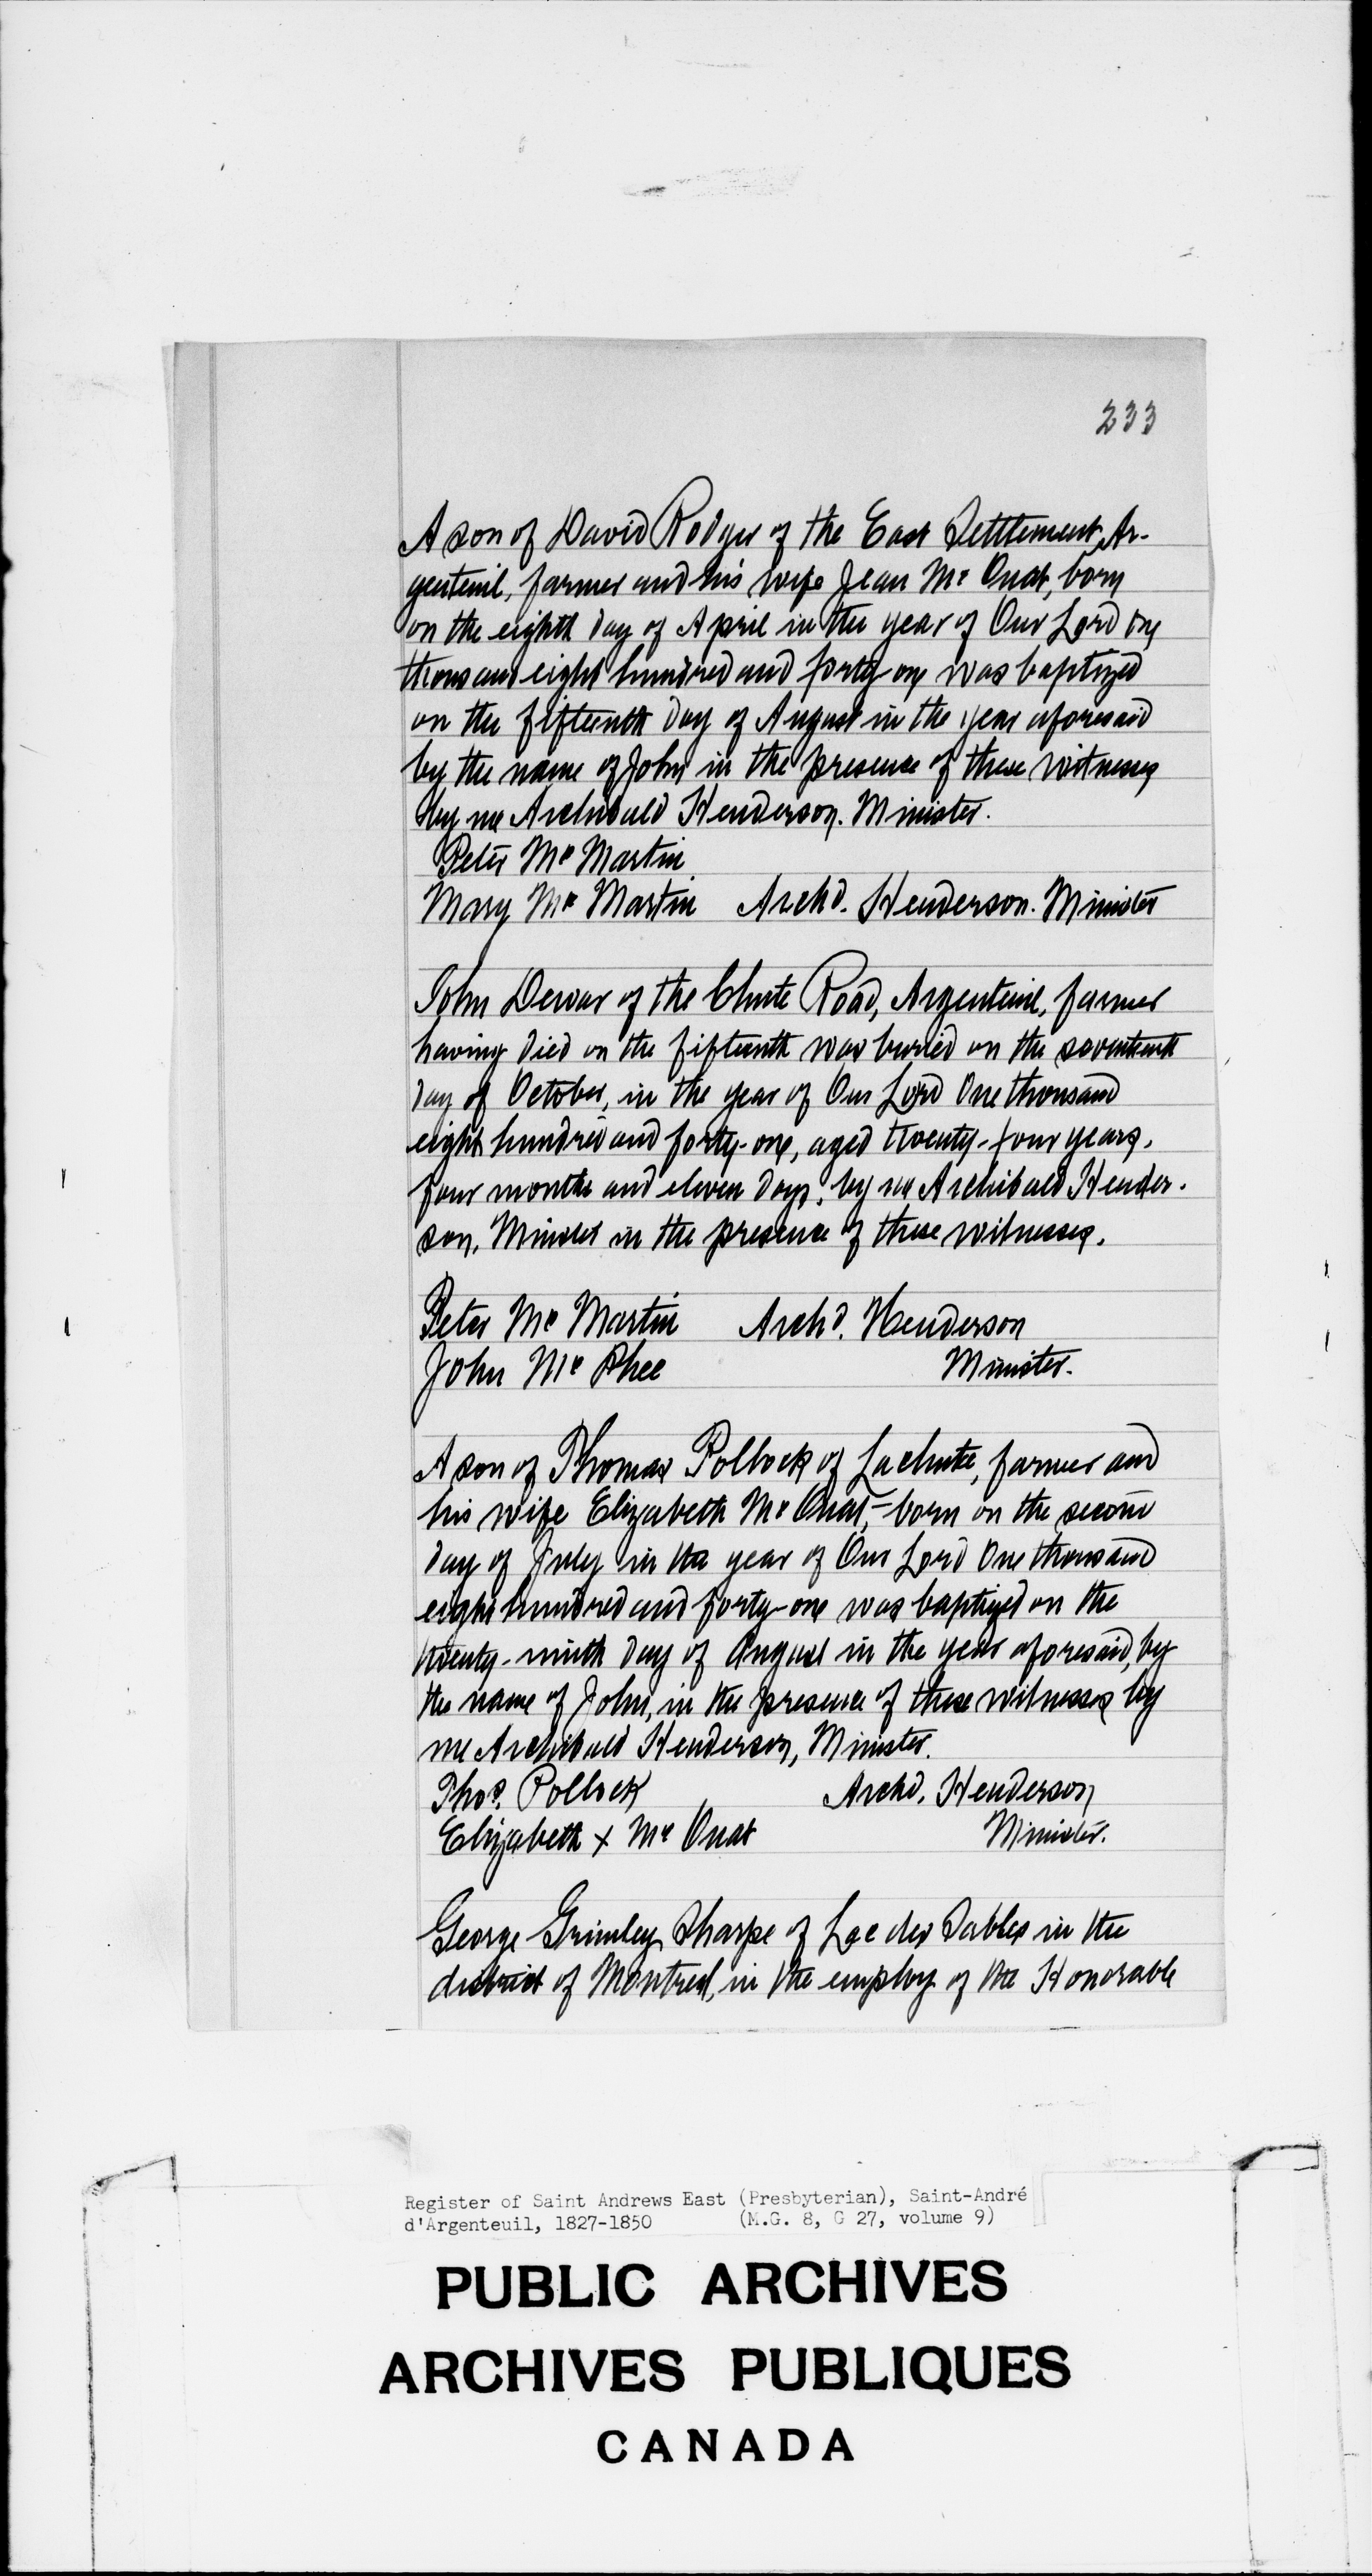 233
A son of David Rodger of the East Settlement, Ar-
genteuil, farmer and his wife Jean Mc Ouat, born
on the eighth day of April in the year of Our Lord one
thousand eight hundred and forty-one was baptized
on the fifteenth day of August in the year aforesaid
by the name of John in the presence of these witnesses
by me Archibald Henderson. Minister.
Peter Mc Martin
Mary Mc Martin Archd. Henderson. Minister
John Dewar of the Chute Road, Argenteuil, farmer
having died on the fifteenth was buried on the seventeenth
day of October, in the year of Our Lord One thousand
eight hundred and forty-one, aged twenty-four years,
four months and eleven days, by me Archibald Hender-
son, Minister in the presence of these witnesses.
Peter Mc Martin Archd. Henderson
John Mc Phee Minister.
A son of Thomas Pollock of Lachute, farmer and
his wife Elizabeth Mc Ouat, - born on the second
day of July in the year of Our Lord One thousand
eight hundred and forty-one was baptized on the
twenty-ninth day of August in the year aforesaid, by
the name of John, in the presence of these witnesses by
me Archibald Henderson, Minister.
Thos. Pollock Archd. Henderson
Elizabeth x Mc Ouat Minister.
George Grimley Sharpe of Lac des Sables in the
district of Montreal, in the employ of the Honorable
Register of Saint Andrews East (Presbyterian), Saint-André
d'Argenteuil, 1827-1850 (M.G. 8, G 27, volume 9)
PUBLIC ARCHIVES
ARCHIVES PUBLIQUES
CANADA